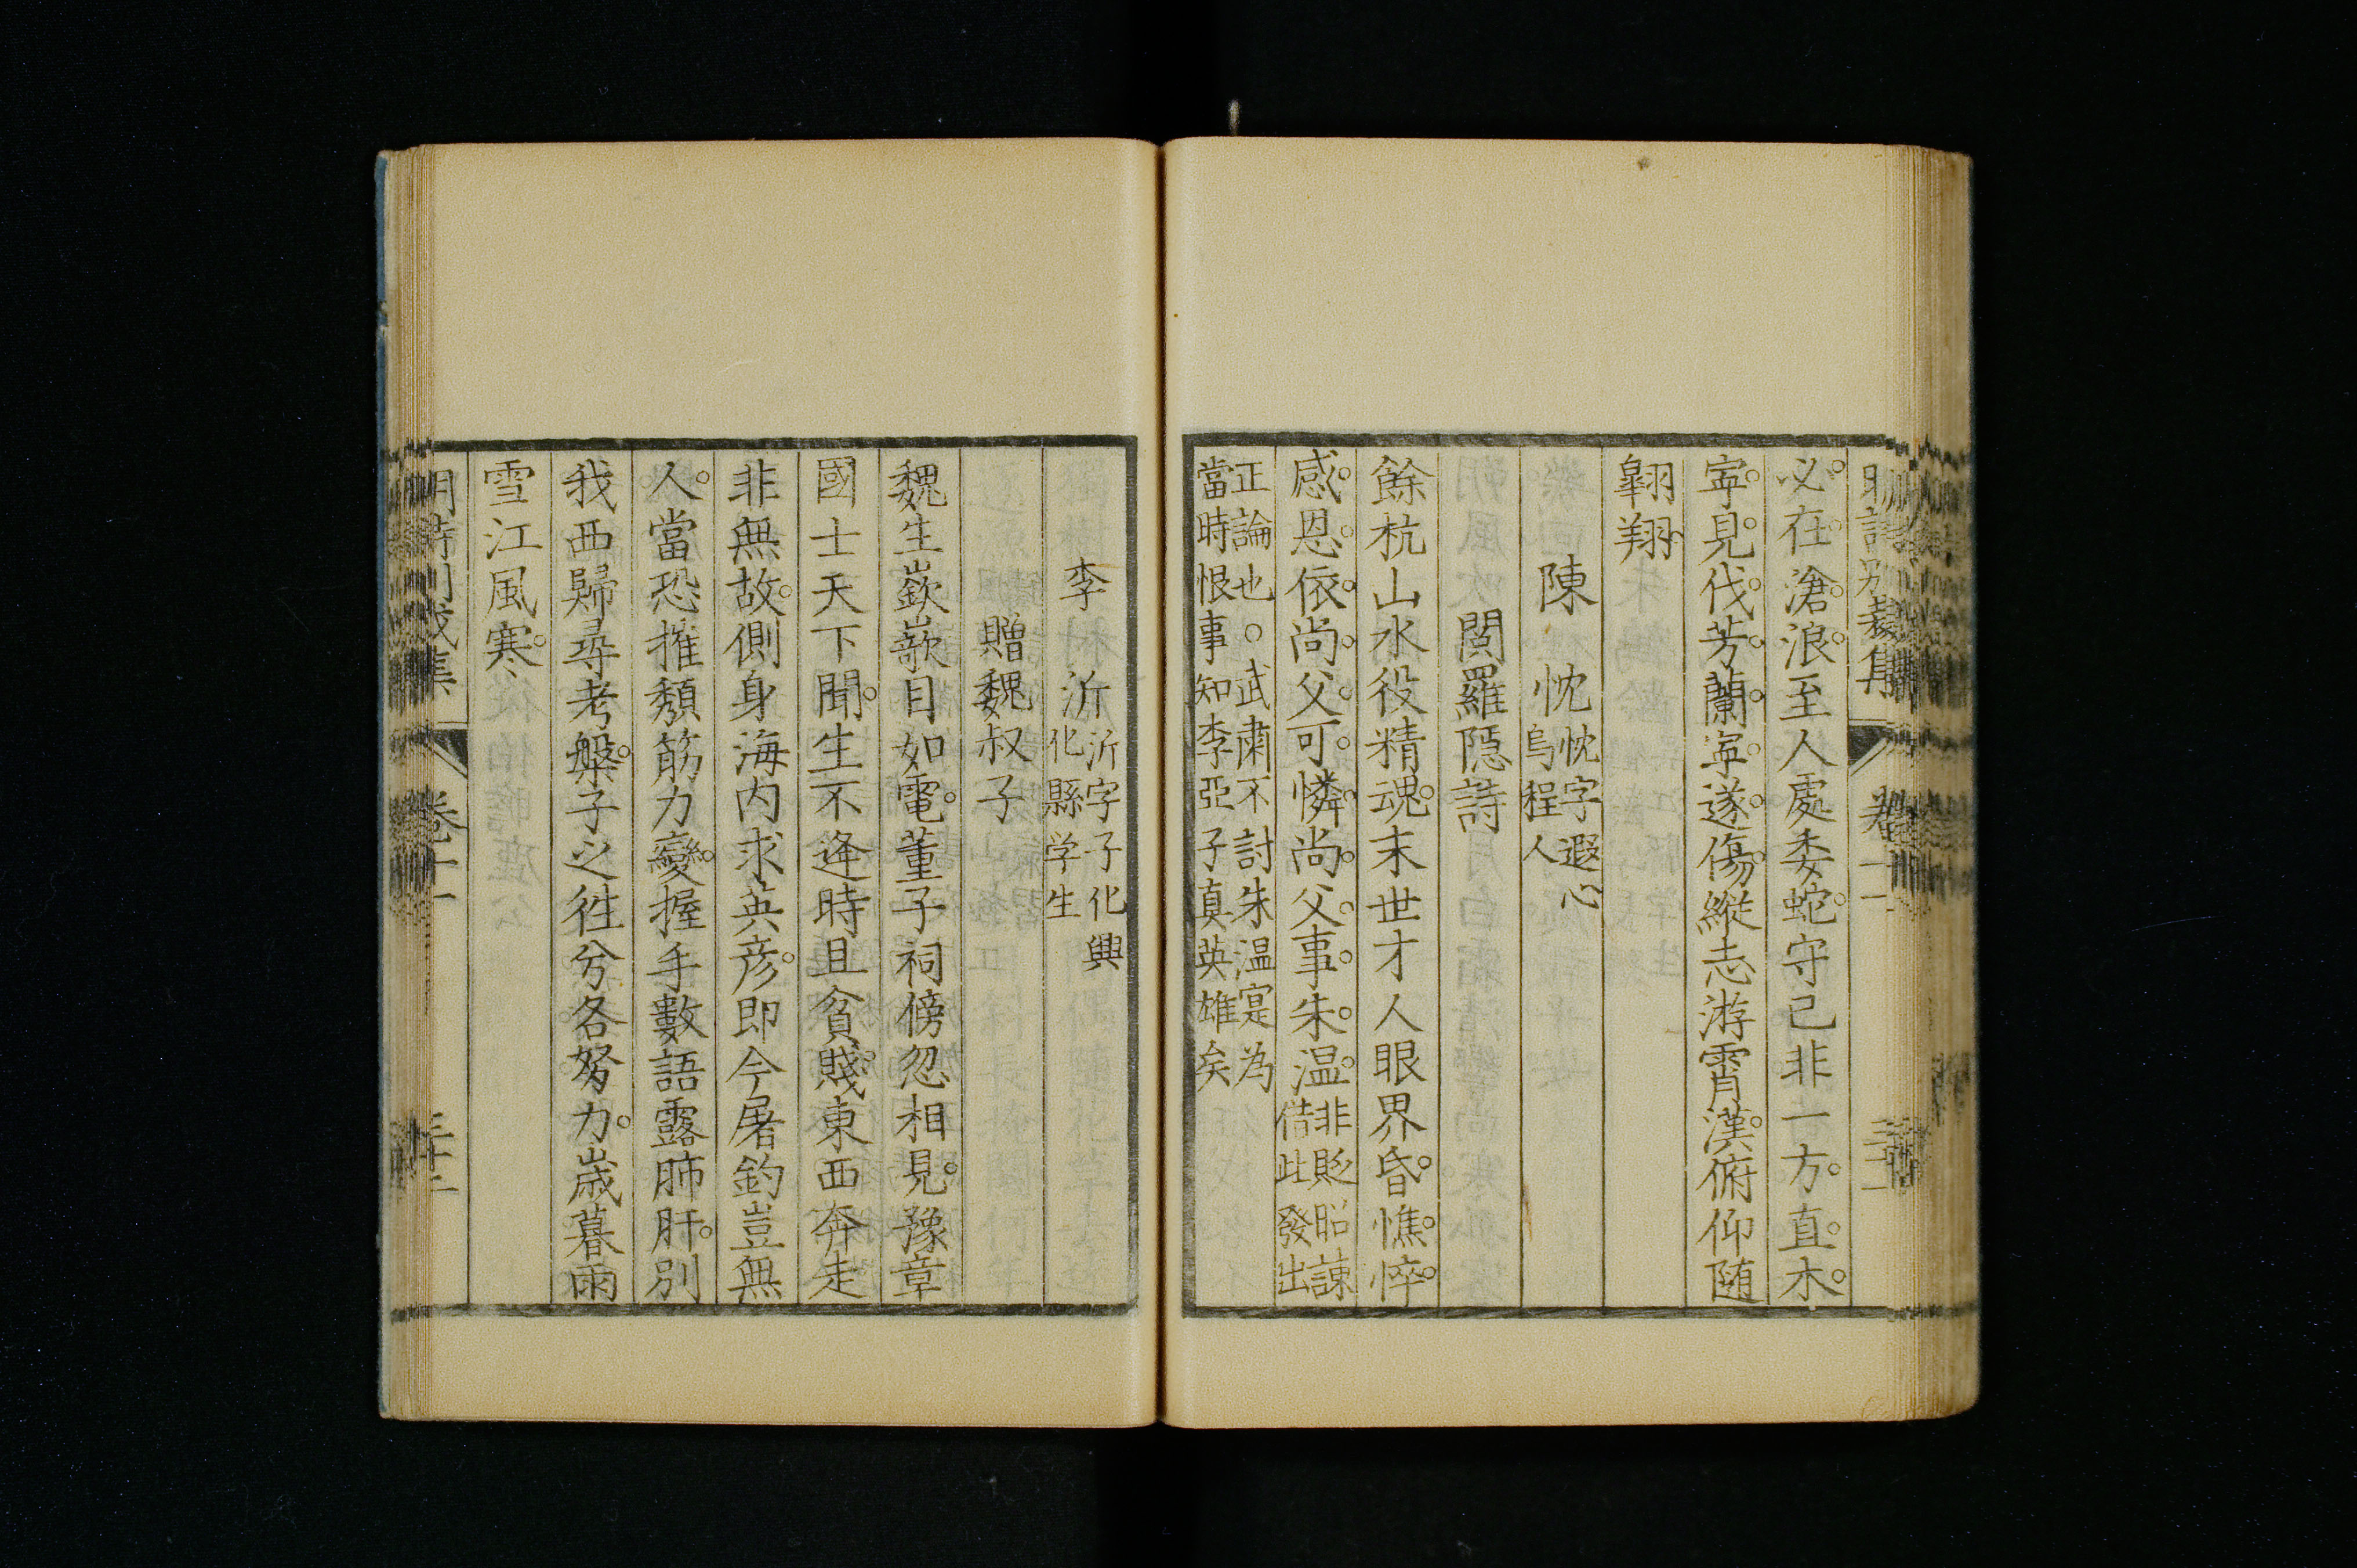 必在滄浪至人處委蛇守己非一方直木
寕見伐芳蘭寕遂傷縱志游霄漢俯仰随
翺翔
陳 忱 忱字遐心
烏程人
閲羅隠詩
餘杭山水役精魂末世才人眼界昏憔悴
感恩依尚父可憐尚父事朱温 非貶昭諫
借此發出
正論也○武肅不討朱温寔為
當時恨事知李亞子真英雄矣
李 沂 沂字子化興
化縣学生
贈魏叔子
魏生嶔嶔目如電董子祠傍忽相見豫章
國士天下聞生不逢時且貧賤東西奔走
非無故側身海内求英彦即今屠釣豈無
人當恐摧頽筋力變握手數語露肺肝别
我西歸尋考槃子之徃兮各努力歳暮雨
雪江風寒
卷十一